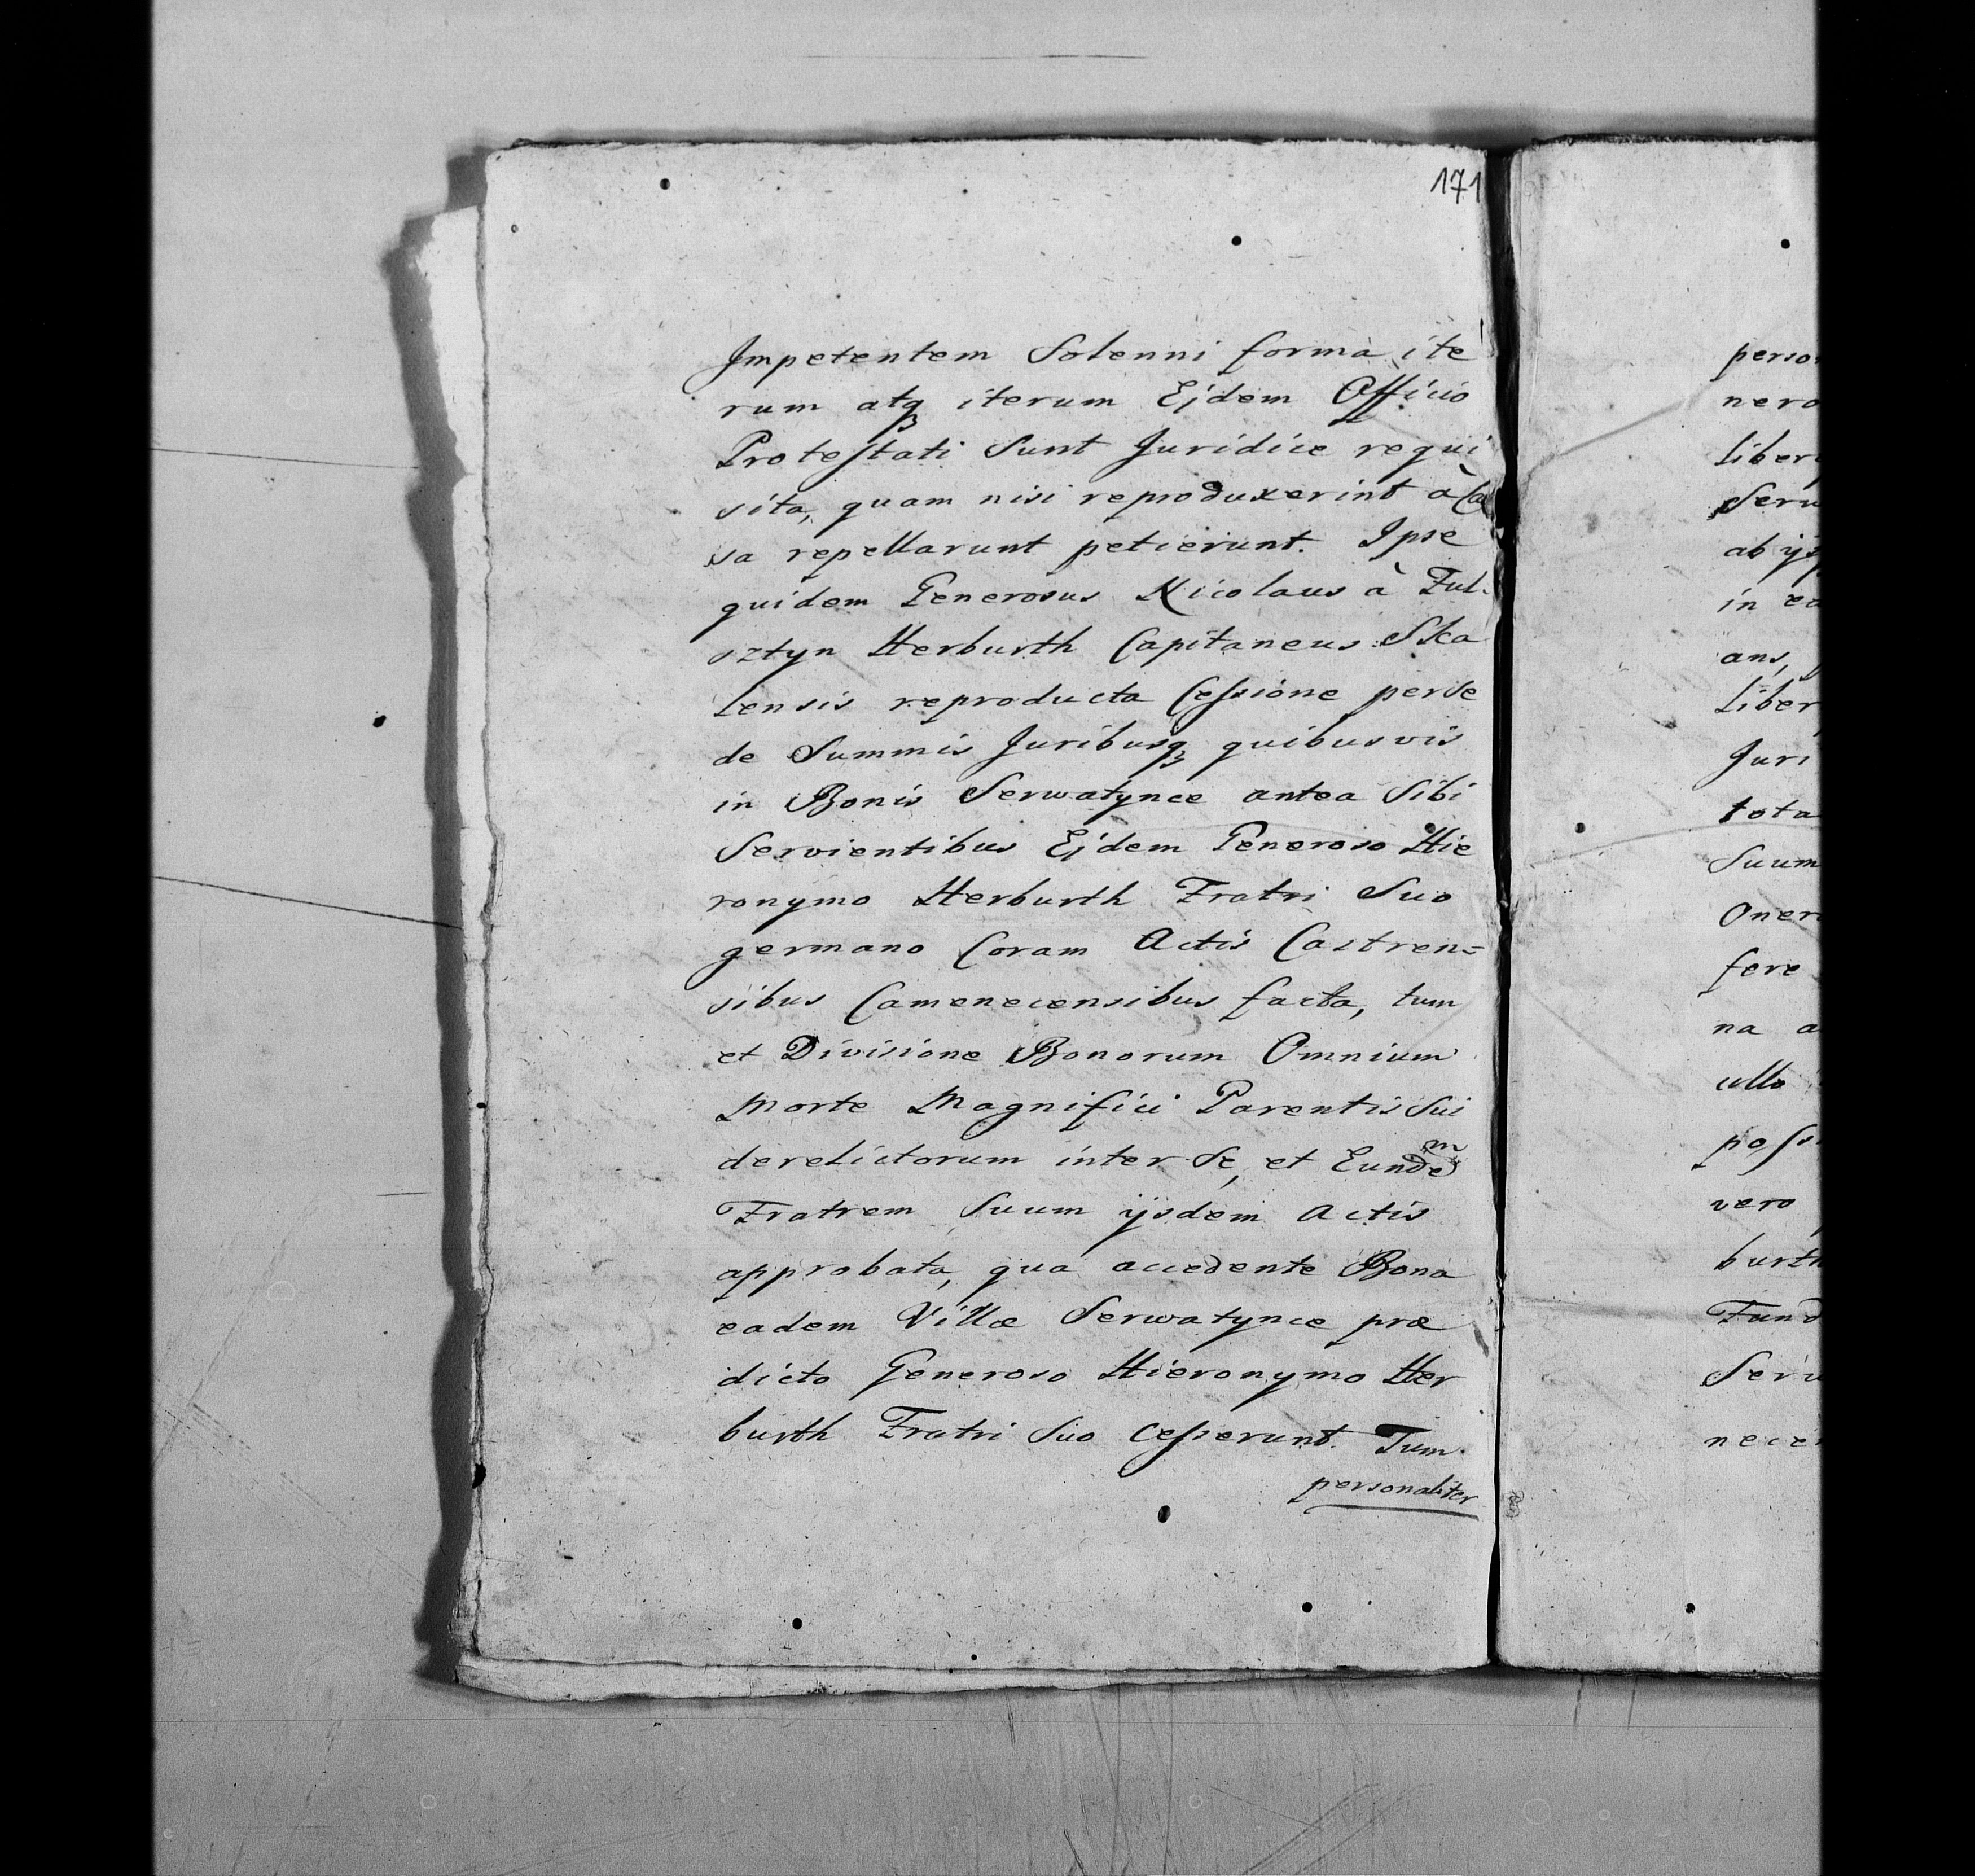 171
Impetentem Solenni forma ite
rum atq3 iterum Eidem Officio
Protestati Sunt Juridice requi
sita, quam nisi reproduxerint à Ca
sa repellarunt petierunt. Ipse
quidem Generosus Nicolaus à Ful-
sztyn Herburth Capitaneus Ska
lensis reproducta Cessione per se
de Summis Juribusq3 quibusvis
in Bonis Serwatynce antea Sibi
Servientibus Eidem Generoso Hie
ronymo Herburth Fratri Suo
germano Coram Actis Castren=
sibus Camenecensibus facta, tum
et Divisione Bonorum Omnium
Morte Magnifici Parentis Sui
derelictorum inter Se, et Eundem
Fratrem Suum ijsdem Actis
approbata, qua accedente Bona
eadem Villæ Serwatynce præ
dicto Generoso Hieronymo Her
burth Fratri Suo Cesserunt. Tum
personaliter
perso
nero
liber
Seru
ab
in
ans,
Liber
Juri
tota
Suum
Oner
fere
na a
ullo
poss
vero
burth
Fund
Seru
nece